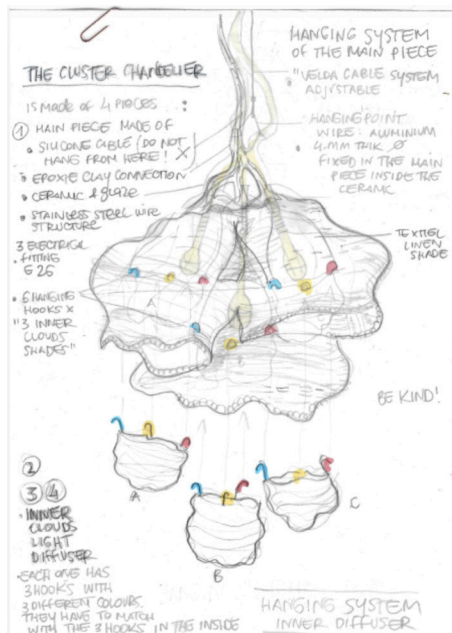 THE CLUSTER CHANDELIER
IS MADE OF 4 PIECES :
① MAIN PIECE MADE OF
• SILICONE CABLE (DO NOT
HANG FROM HERE! X)
• EPOXIE CLAY CONNECTION
• CERAMIC & GLAZE
• STAINLESS STEEL WIRE
STRUCTURE
3 ELECTRICAL
• FITTING
E26
• 6 HANGING
HOOKS X
"3 INNER
CLOUDS
SHADES"
HANGING SYSTEM
OF THE MAIN PIECE
• "VELDA CABLE SYSTEM
ADJUSTABLE
• HANGING POINT
WIRE: ALUMINIUM
4 MM THIK Ø
FIXED IN THE MAIN
PIECE INSIDE THE
CERAMIC
TEXTIEL
LINEN
SHADE
BE KIND!
A
B
A
B
C
②
③ ④
• INNER
CLOUDS
LIGHT
DIFFUSER
• EACH ONE HAS
3 HOOKS WITH
3 DIFFERENT COLOURS.
THEY HAVE TO MATCH
WITH THE 3 HOOKS IN THE INSIDE
HANGING SYSTEM
INNER DIFFUSER